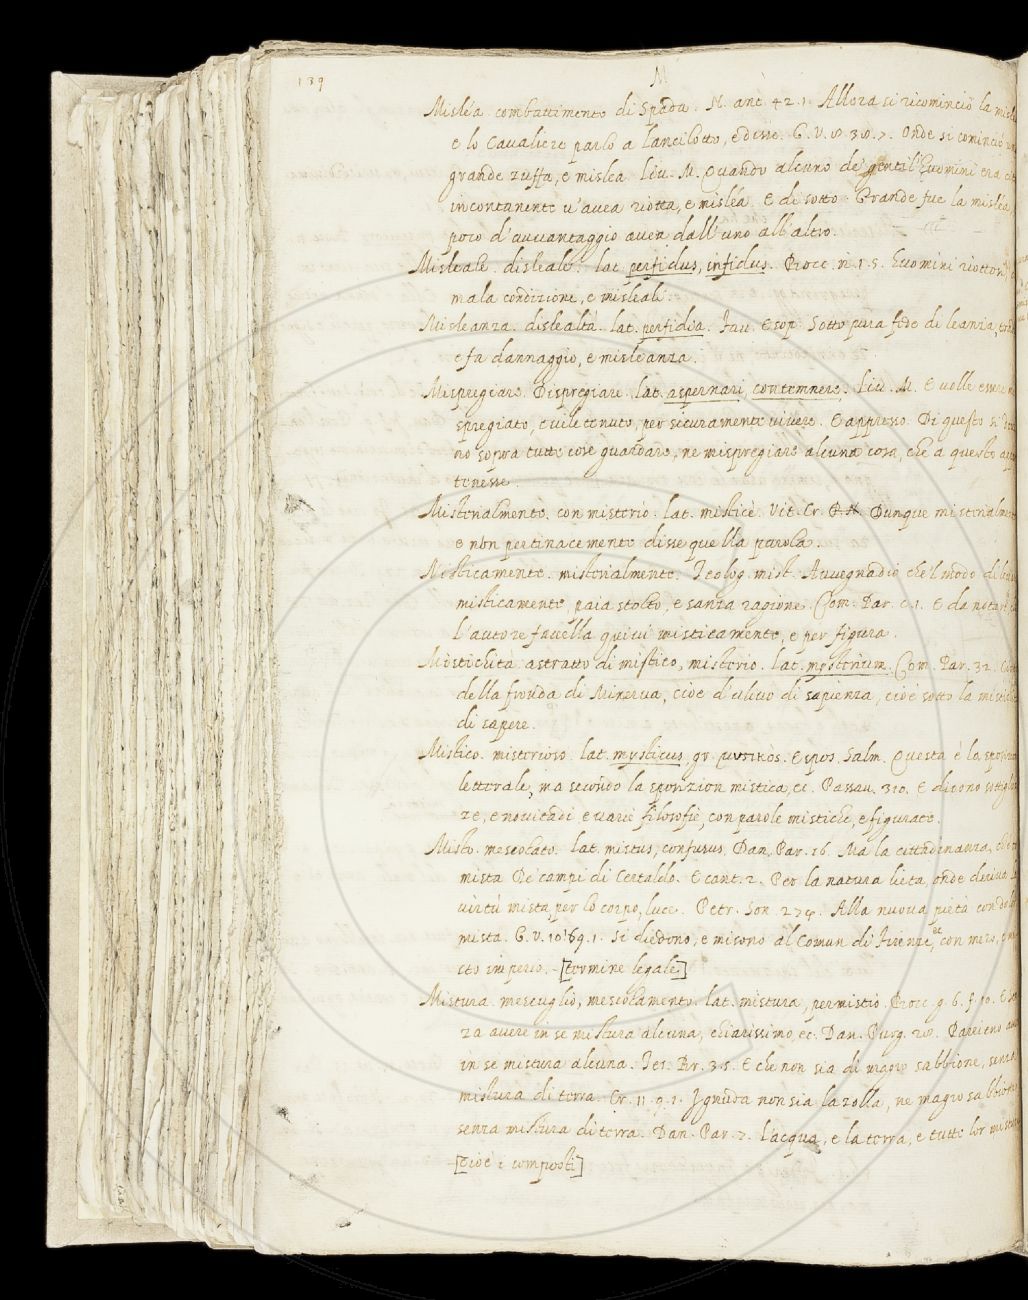 139
M
Misléa. combattimento di Spada. N. ant. 42. 1. Allora si ricominciò la
e lo Cavaliere parlò a Lancilotto, e disse. G. V. 8. 38. 7. Onde si cominciò
grande zuffa, e mislea. Liv. M. Quando alcuno de' gentil'Huomini era
incontanente v'avea riotta, e misléa. E di sotto. Grande fue la misléa,
poco d'avvantaggio avea dall'uno all'altro.
Misleale. disleale. lat. perfidus, infidus. Huomini
mala condizione, e misleali.
Misleanza. dislealtà. lat. perfidia. Fav. Esop. Sotto pura fede di leanza,
e fa dannaggio, e misleanza.
Mispregiare. Dispregiare. lat. aspernari, contemnere. Liv. M. E volle essere
spregiato, e vile tenuto, per sicuramente vivere. E appresso. Di questo si
no sopra tutte cose guardare, ne mispregiare alcuna cosa, che a questo
tenesse.
Misterialmente. con misterio. lat. misticè. Vit. Cr. Dunque misterialmente
e non pertinacemente disse quella parola.
Misticamente. misterialmente. Teolog. mist. Avvegnadio che'l modo di
misticamente, paia stolto, e sanza ragione. Com. Par. c. 1. E da notare
l'autore favella quivi misticamente, e per figura.
Mistichità. astratto di mistico, misterio. lat. mysterium. Com. Par. 32.
della fronda di Minerva, cioè d'ulivo di sapienza, cioè sotto la
di sapere.
Mistico. misterioso. lat. mysticus, gr. μυστικός. Espos. Salm. Questa è lo
letterale, ma secondo la sposizion mistica, ec. Passav. 310. E dicono
ze, e novitadi, e varie filosofie, con parole mistiche, e figurate.
Misto. mescolato. lat. mistus, confusus. Dan. Par. 16. Ma la cittadinanza, ch'è
mista De' campi di Certaldo. E cant. 2. Per la natura lieta, onde deriva La
virtù mista per lo corpo, luce. Petr. Son. 274. Alla nuova pietà con
mista. G. V. 10. 69. 1. Si diedono, e misono al Comun di Firenze, ec con mero, e
sto imperio. [termine legale]
Mistura. mescuglio, mescolamento. lat. mistura, permistio. Bocc. g. 6. f. 10. E
za avere in se mistura alcuna, chiarissimo, ec. Dan. Purg. 28. Parrieno
in se mistura alcuna. Tes. Br. 3. 5. E che non sia di magro sabbione, senza
mistura di terra. Cr. 11. 9. 1. Ignuda non sia la zolla, ne magro sabbione
senza mistura di terra. Dan. Par. 7. L'acqua, e la terra, e tutte lor misture
[cioè i composti]